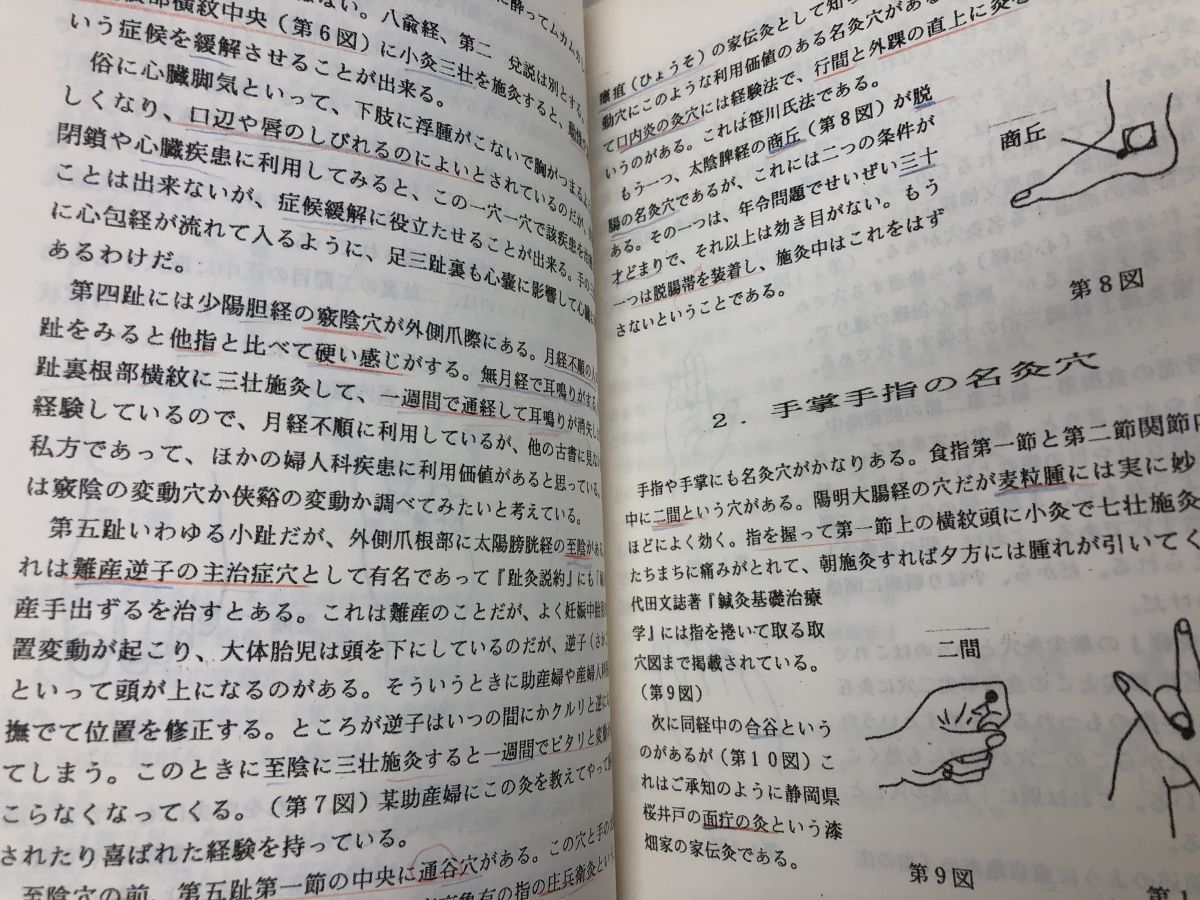 に酔ってムカムカし
ない。八兪経、第二 兌説は別とする。
部横紋中央（第６図）に小灸三壮を施灸すると、
いう症候を緩解させることが出来る。
俗に心臓脚気といって、下肢に浮腫がこないで胸がつまるよ
しくなり、口辺や唇のしびれるのによいとされているのだが、
閉鎖や心臓疾患に利用してみると、この一穴一穴で該疾患を治
ことは出来ないが、症候緩解に役立たせることが出来る。手の
に心包経が流れて入るように、足三趾裏も心嚢に影響して心臓
あるわけだ。
第四趾には少陽胆経の竅陰穴が外側爪際にある。月経不順の人
趾をみると他指と比べて硬い感じがする。無月経で耳鳴りがする
趾裏根部横紋に三壮施灸して、一週間で通経して耳鳴りが消失し
経験しているので、月経不順に利用しているが、他の古書に見な
私方であって、ほかの婦人科疾患に利用価値があると思っている。
は竅陰の変動穴か侠谿の変動か調べてみたいと考えている。
第五趾いわゆる小趾だが、外側爪根部に太陽膀胱経の至陰がある
れは難産逆子の主治症穴として有名であって『趾灸説約』にも「
産手出ずるを治すとある。これは難産のことだが、よく妊娠中胎児
置変動が起こり、大体胎児は頭を下にしているのだが、逆子（さか
といって頭が上になるのがある。そういうときに助産婦や産婦人科
撫でて位置を修正する。ところが逆子はいつの間にかクルリと逆に
てしまう。このときに至陰に三壮施灸すると一週間でピタリと変
こらなくなってくる。（第７図）某助産婦にこの灸を教えてやって
されたり喜ばれた経験を持っている。
至陰穴の前、第五趾第一節の中央に通谷穴がある。この穴と手の
有の指の庄兵衛灸とい
瘭疽（ひょうそ）の家伝灸として知ら
動穴にこのような利用価値のある名灸穴がある
て口内炎の灸穴には経験法で、行間と外踝の直上に灸を
いうのがある。これは笹川氏法である。
もう一つ、太陰脾経の商丘（第８図）が脱
腸の名灸穴であるが、これには二つの条件が
ある。その一つは、年令問題でせいぜい三十
才どまりで、それ以上は効き目がない。もう
一つは脱腸帯を装着し、施灸中はこれをはず
さないということである。
商丘
第８図
２．手掌手指の名灸穴
手指や手掌にも名灸穴がかなりある。食指第一節と第二節関節
中に二間という穴がある。陽明大腸経の穴だが麦粒腫には実に妙
ほどによく効く。指を握って第一節上の横紋頭に小灸で七壮施灸
たちまちに痛みがとれて、朝施灸すれば夕方には腫れが引いてく
代田文誌著『鍼灸基礎治療
学』には指を捲いて取る取
穴図まで掲載されている。
（第９図）
次に同経中の合谷という
のがあるが（第１０図）こ
れはご承知のように静岡県
桜井戸の面疔の灸という漆
畑家の家伝灸である。
二間
第９図
第１